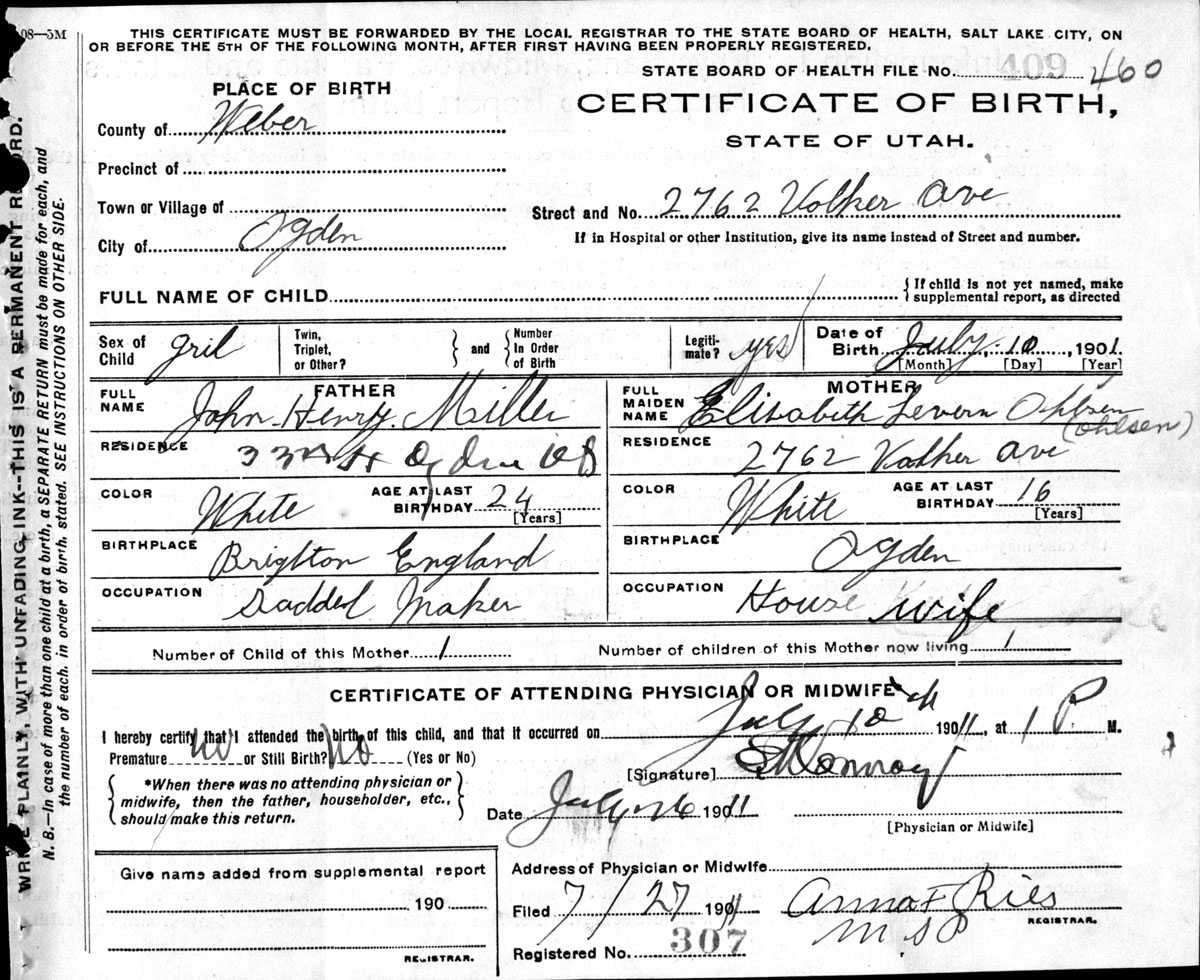 08—5M
THIS CERTIFICATE MUST BE FORWARDED BY THE LOCAL REGISTRAR TO THE STATE BOARD OF HEALTH, SALT LAKE CITY, ON
OR BEFORE THE 5TH OF THE FOLLOWING MONTH, AFTER FIRST HAVING BEEN PROPERLY REGISTERED.
STATE BOARD OF HEALTH FILE No. 409 460
PLACE OF BIRTH
CERTIFICATE OF BIRTH,
STATE OF UTAH.
County of Weber
Precinct of
Town or Village of
Street and No. 2762 Volker ave
City of Ogden
If in Hospital or other Institution, give its name instead of Street and number.
FULL NAME OF CHILD
{ If child is not yet named, make
supplemental report, as directed
Sex of Child gril
Twin, Triplet, or Other? } and { Number In Order of Birth
Legiti-mate? yes
Date of Birth July 10, 1901
[Month] [Day] [Year]
FATHER
FULL NAME John Henry Miller
MOTHER
FULL MAIDEN NAME Elisabeth Levern Ohlsen
(Ohlsen)
RESIDENCE 33rd St Ogden
RESIDENCE 2762 Volker ave
COLOR White AGE AT LAST BIRTHDAY 24 [Years]
COLOR White AGE AT LAST BIRTHDAY 16 [Years]
BIRTHPLACE Brighton England
BIRTHPLACE Ogden
OCCUPATION Saddel Maker
OCCUPATION House wife
Number of Child of this Mother 1
Number of children of this Mother now living 1
CERTIFICATE OF ATTENDING PHYSICIAN OR MIDWIFE*
I hereby certify that I attended the birth of this child, and that it occurred on July 10th 1911, at 1 P. M.
Premature no or Still Birth? no (Yes or No)
{ *When there was no attending physician or
midwife, then the father, householder, etc.,
should make this return. }
[Signature]
Date July 26 1911
[Physician or Midwife]
Give name added from supplemental report
190
REGISTRAR.
Address of Physician or Midwife
Filed 7/27 1911 Anna F Ries
REGISTRAR.
Registered No. 307
WRITE PLAINLY, WITH UNFADING INK--THIS IS A PERMANENT RECORD.
N. B.—In case of more than one child at a birth, a SEPARATE RETURN must be made for each, and
the number of each, in order of birth, stated. SEE INSTRUCTIONS ON OTHER SIDE.